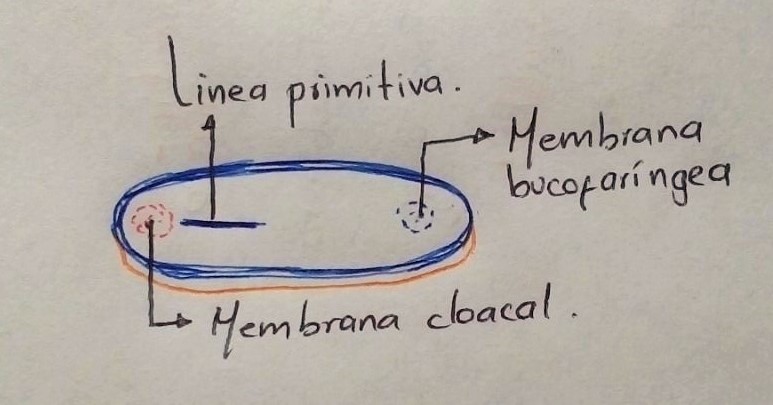 Linea primitiva.
Membrana
bucofaríngea
Membrana cloacal.